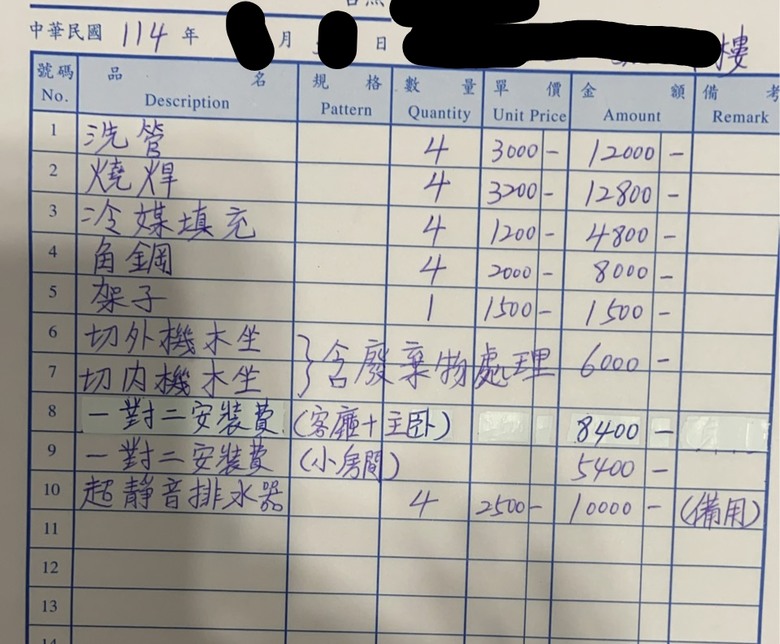 中華民國 114 年 月 日 樓
號碼 No. 品名 Description 規格 Pattern 數量 Quantity 單價 Unit Price 金額 Amount 備考 Remark
1 洗管 4 3000- 12000-
2 燒焊 4 3200- 12800-
3 冷媒填充 4 1200- 4800-
4 角鋼 4 2000- 8000-
5 架子 1 1500- 1500-
6 切外機木坐 }含廢棄物處理 6000-
7 切內機木坐
8 一對二安裝費 (客廳+主卧) 8400-
9 一對二安裝費 (小房間) 5400-
10 超靜音排水器 4 2500- 10000- (備用)
11
12
13